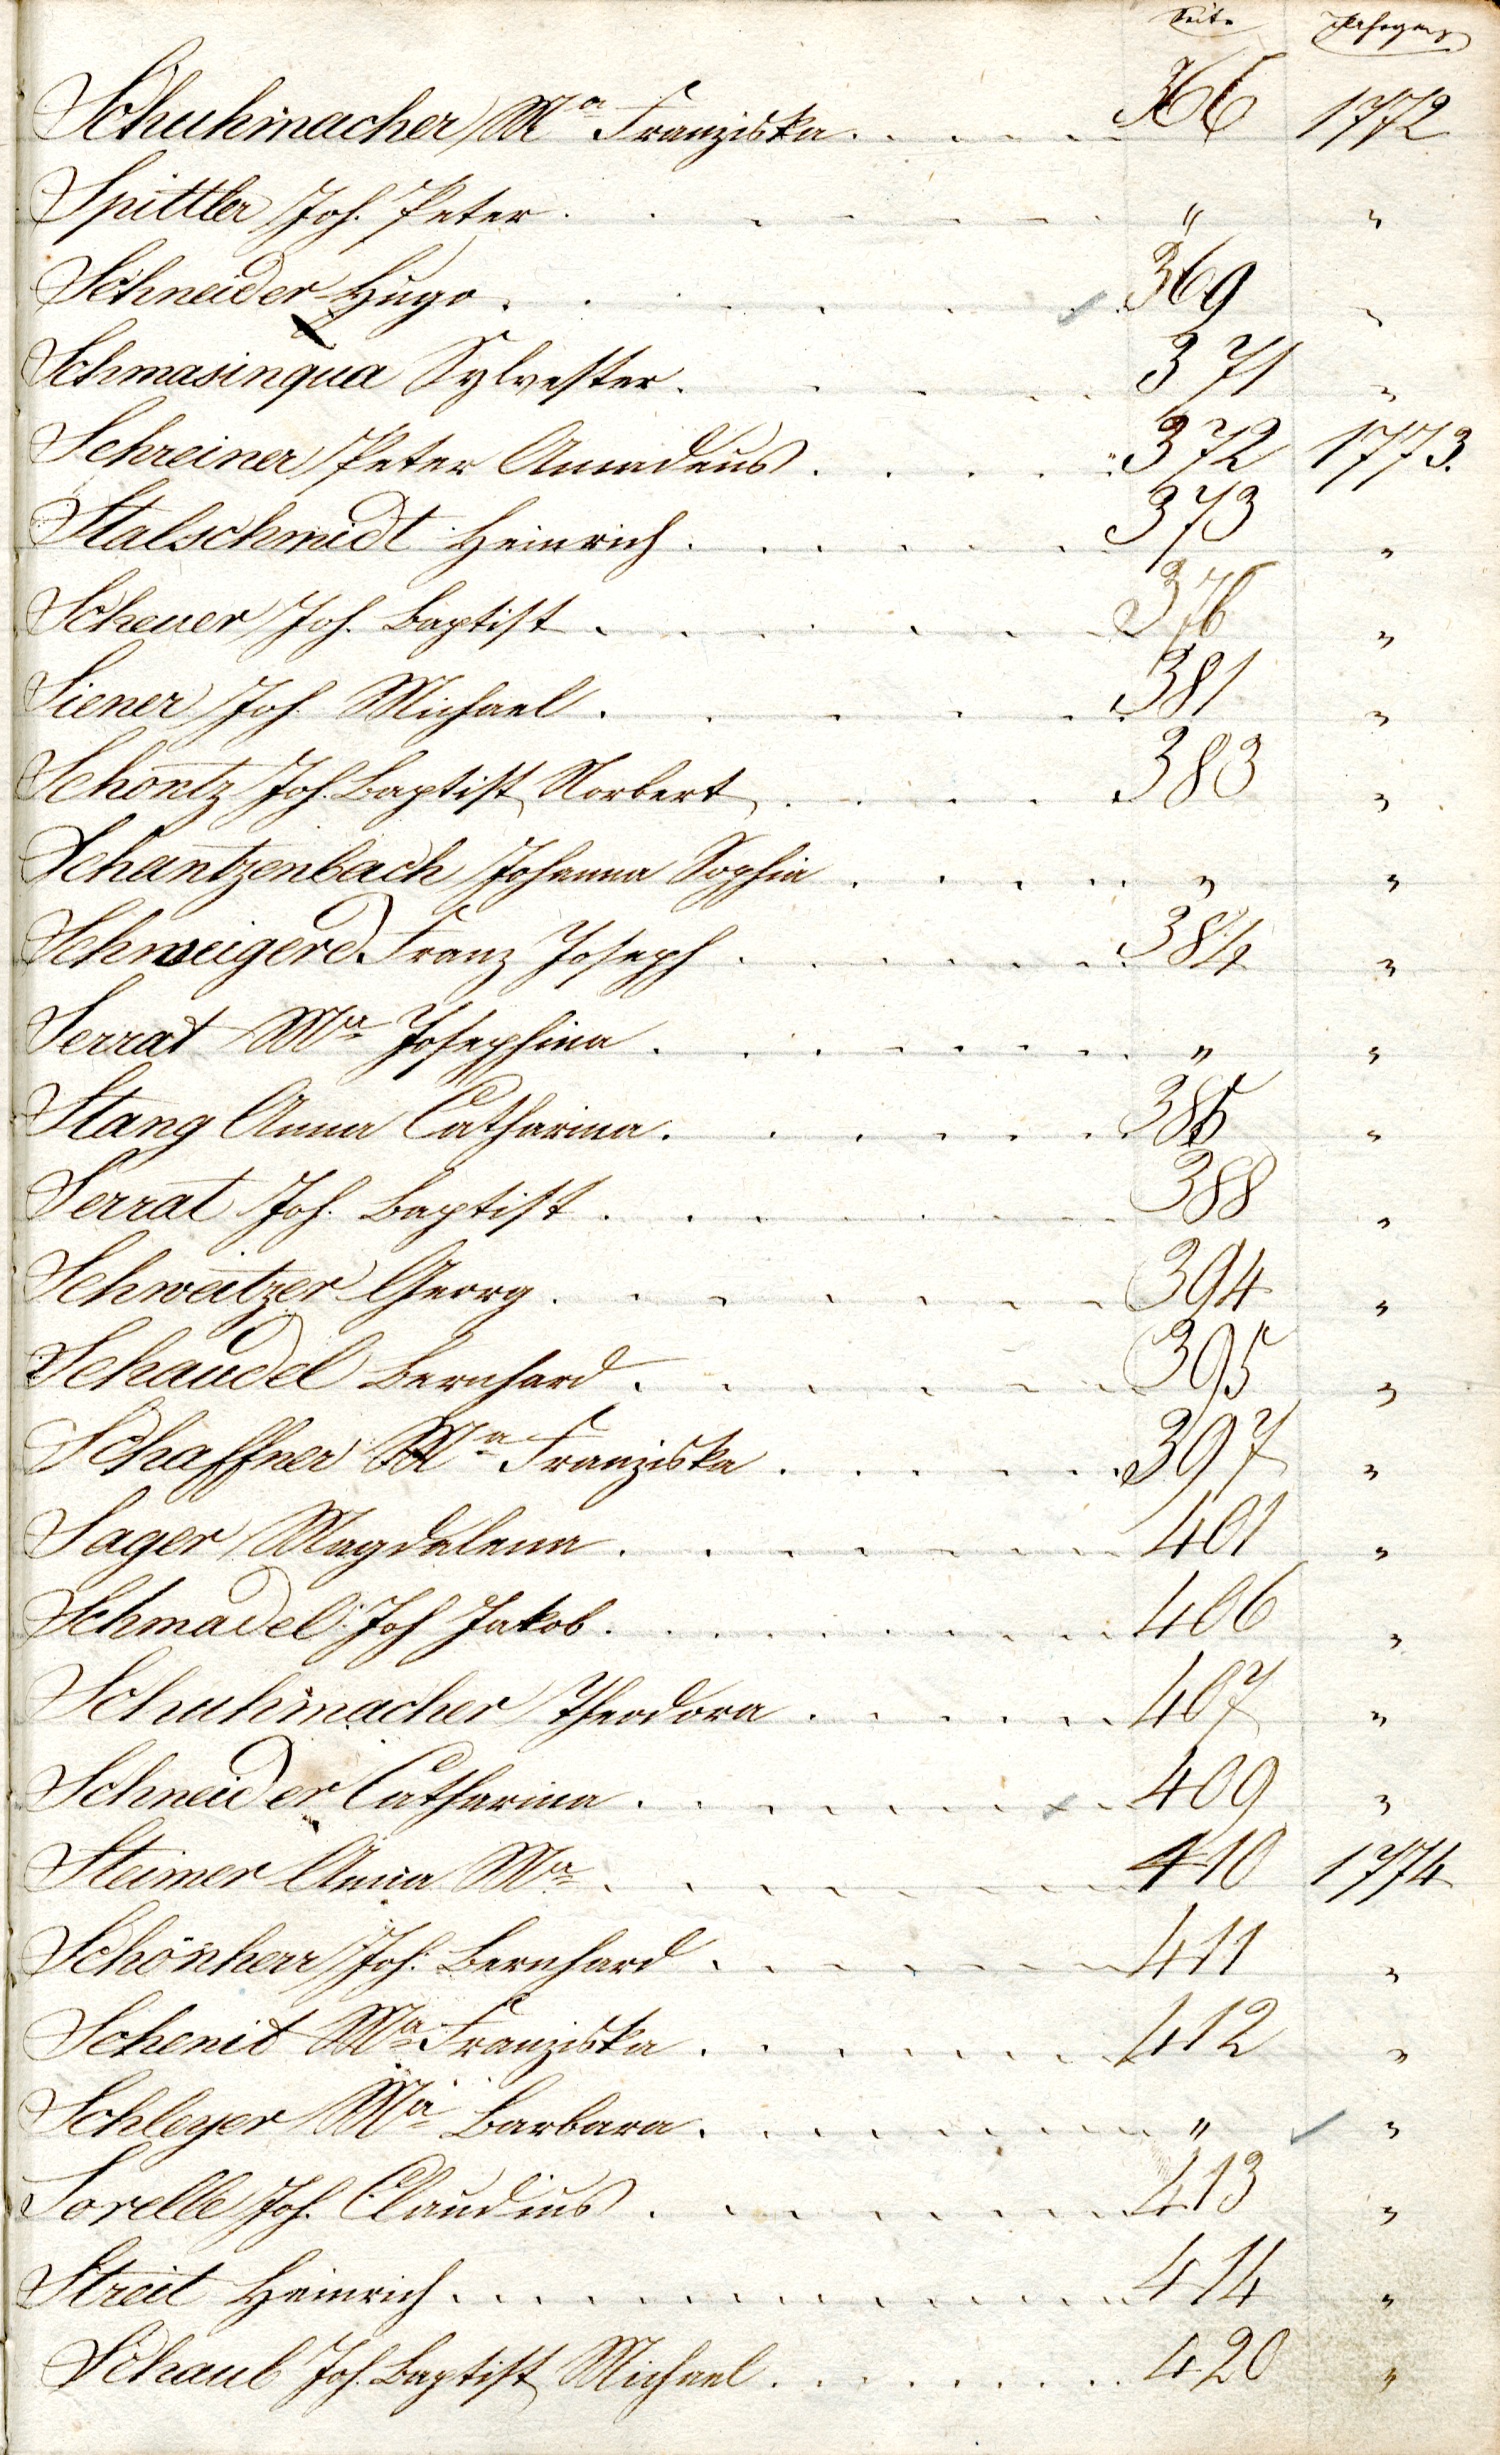 Seite Jahrgang
Schuhmacher Mª Franziska . . . . . 366 1772
Spittler Joh. Peter . . . . . . . " "
Schneider Hugo . . . . . . . 369 "
Schmasinqua Sylvester . . . . . 371 "
Schreiner Peter Amadeus . . . . . 372 1773.
Stalschmidt Heinrich . . . . . . 373 "
Scheuer Joh. Baptist . . . . . . 376 "
Siener Joh. Michael . . . . . . 381 "
Schöntz Joh. Baptist Norbert . . . . . 383 "
Schantzenbach Johanna Sophia . . . . . " "
Schweigerd Franz Joseph . . . . . . 384 "
Serrat Mª Josephina . . . . . . . " "
Stang Anna Catharina . . . . . . 385 "
Serrat Joh. Baptist . . . . . . . 388 "
Schweitzer Georg . . . . . . . 394 "
Schaudel Bernhard . . . . . . . 395 "
Schaffner Mª Franziska . . . . . . 397 "
Sager Magdalena . . . . . . . 401 "
Schmadel Joh Jakob . . . . . . . 406 "
Schuhmacher Theodora . . . . . . 407 "
Schneider Catharina . . . . . . . 409 "
Steimer Anna Mª . . . . . . . . 410 1774
Schönherr Joh. Bernhard . . . . . . 411 "
Schenit Mª Franziska . . . . . . . 412 "
Schleyer Mª Barbara . . . . . . . " "
Sorelle Joh. Claudius . . . . . . . 413 "
Streit Heinrich . . . . . . . . . 414 "
Schaub Joh. Baptist Michael . . . . . . 420 "